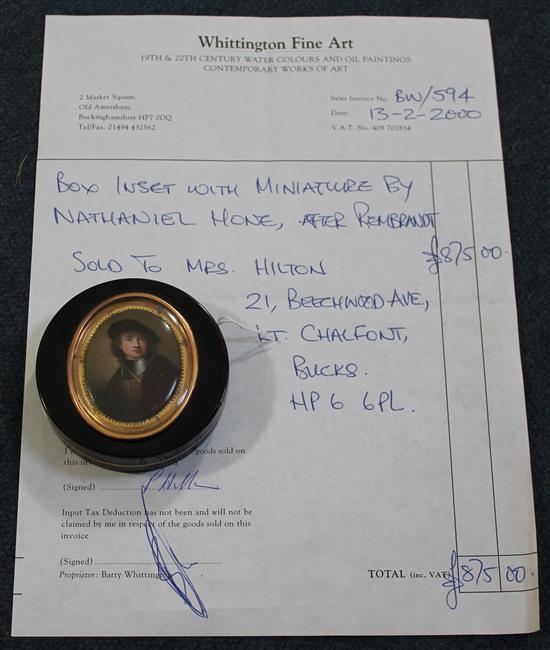 Whittington Fine Art
19TH & 20TH CENTURY WATER COLOURS AND OIL PAINTINGS
CONTEMPORARY WORKS OF ART
2 Market Square,
Old Amersham,
Buckinghamshire HP7 0DQ
Tel/Fax: 01494 432562
Sales Invoice No. BW/594
Date: 13-2-2000
V.A.T. No. 409 701854
BOX INSET WITH MINIATURE BY
NATHANIEL HONE, AFTER REMBRANDT
£875 00.
SOLD TO MRS. HILTON
21, BEECHWOOD AVE,
LT. CHALFONT,
BUCKS.
HP6 6PL.
goods sold on
this
(Signed)
Input Tax Deduction has not been and will not be
claimed by me in respect of the goods sold on this
invoice
(Signed)
Proprietor: Barry Whittington
TOTAL (inc. VAT) £875 00.